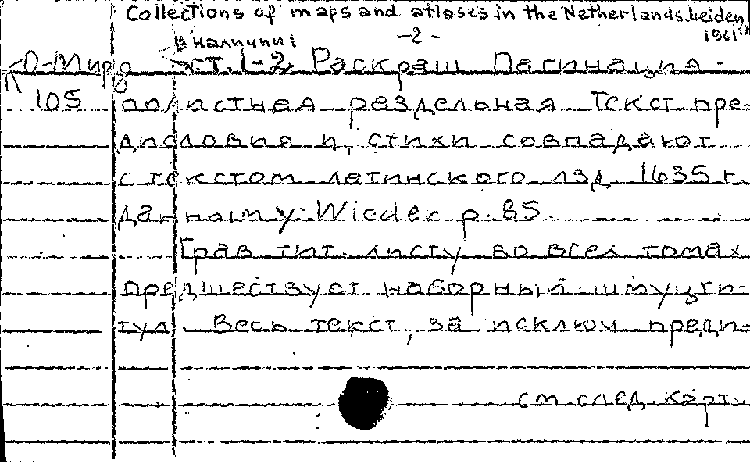 Collections of maps and atlases in the Netherlands. Leiden,
-2- 1961
В наличии:
О-Мир т. 1-2 Раскраш Пагинация -
П 105 полистная раздельная Текст пре-
дисловия и стихи совпадают
с текстом латинского изд. 1635 г.
Wieder p. 85
Грав тит. листу во всех томах
предшествует наборный шмуцти-
тул. Весь текст, за исключ преди-
см след. карт.